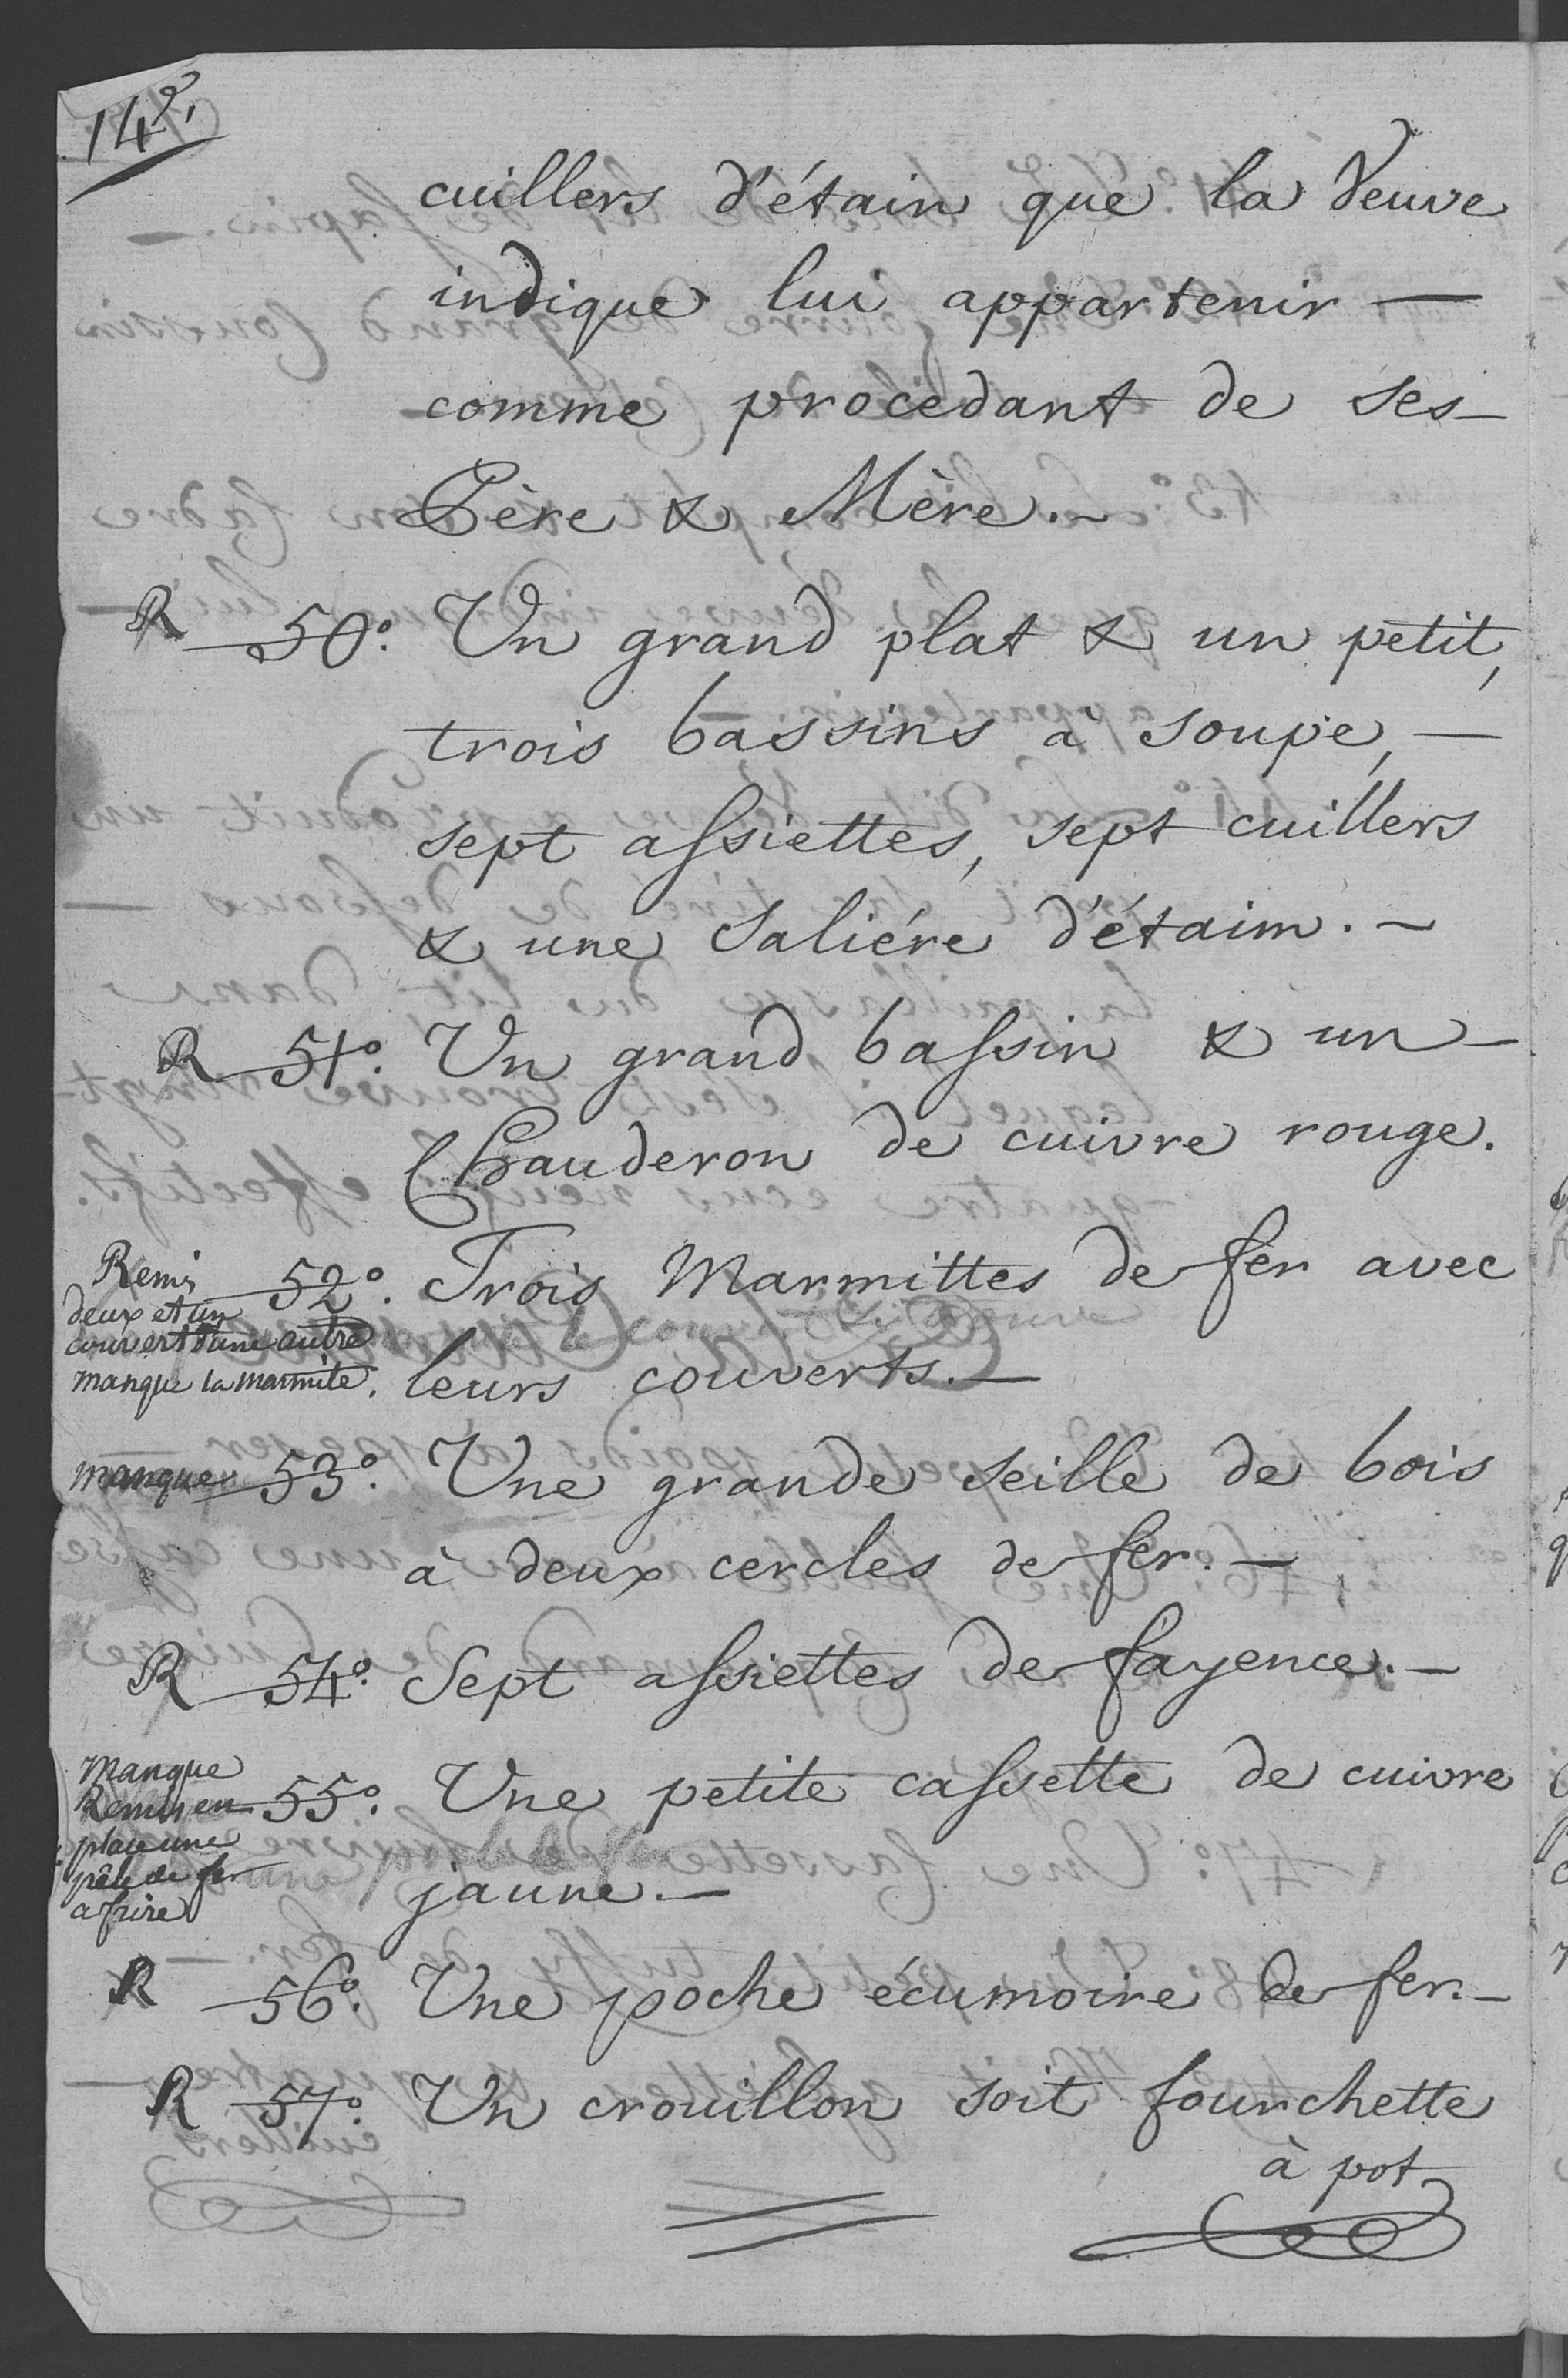 14e,
cuillers d'étain que la Veuve
indique lui appartenir —
comme procedant de ses —
Père & Mère. —
R 50°. Un grand plat & un petit,
trois bassins à soupe, —
sept assiettes, sept cuillers
& une Saliére d'étaim. —
R 51°. Un grand bassin & un —
Chauderon de cuivre rouge.
Remis 52°. Trois Marmittes de fer avec
deux et un
couvert d'une autre
manque la marmite. leurs couverts. —
manque 53°. Une grande seille de bois
à deux cercles de fer. —
R 54°. Sept assiettes de fayence. —
Manque
Remis en 55°. Une petite cassette de cuivre
place une
pêle de fer
a frire jaune. —
R 56°. Une poche écumoire de fer. —
R 57°. Un crouillon soit fourchette
à pot